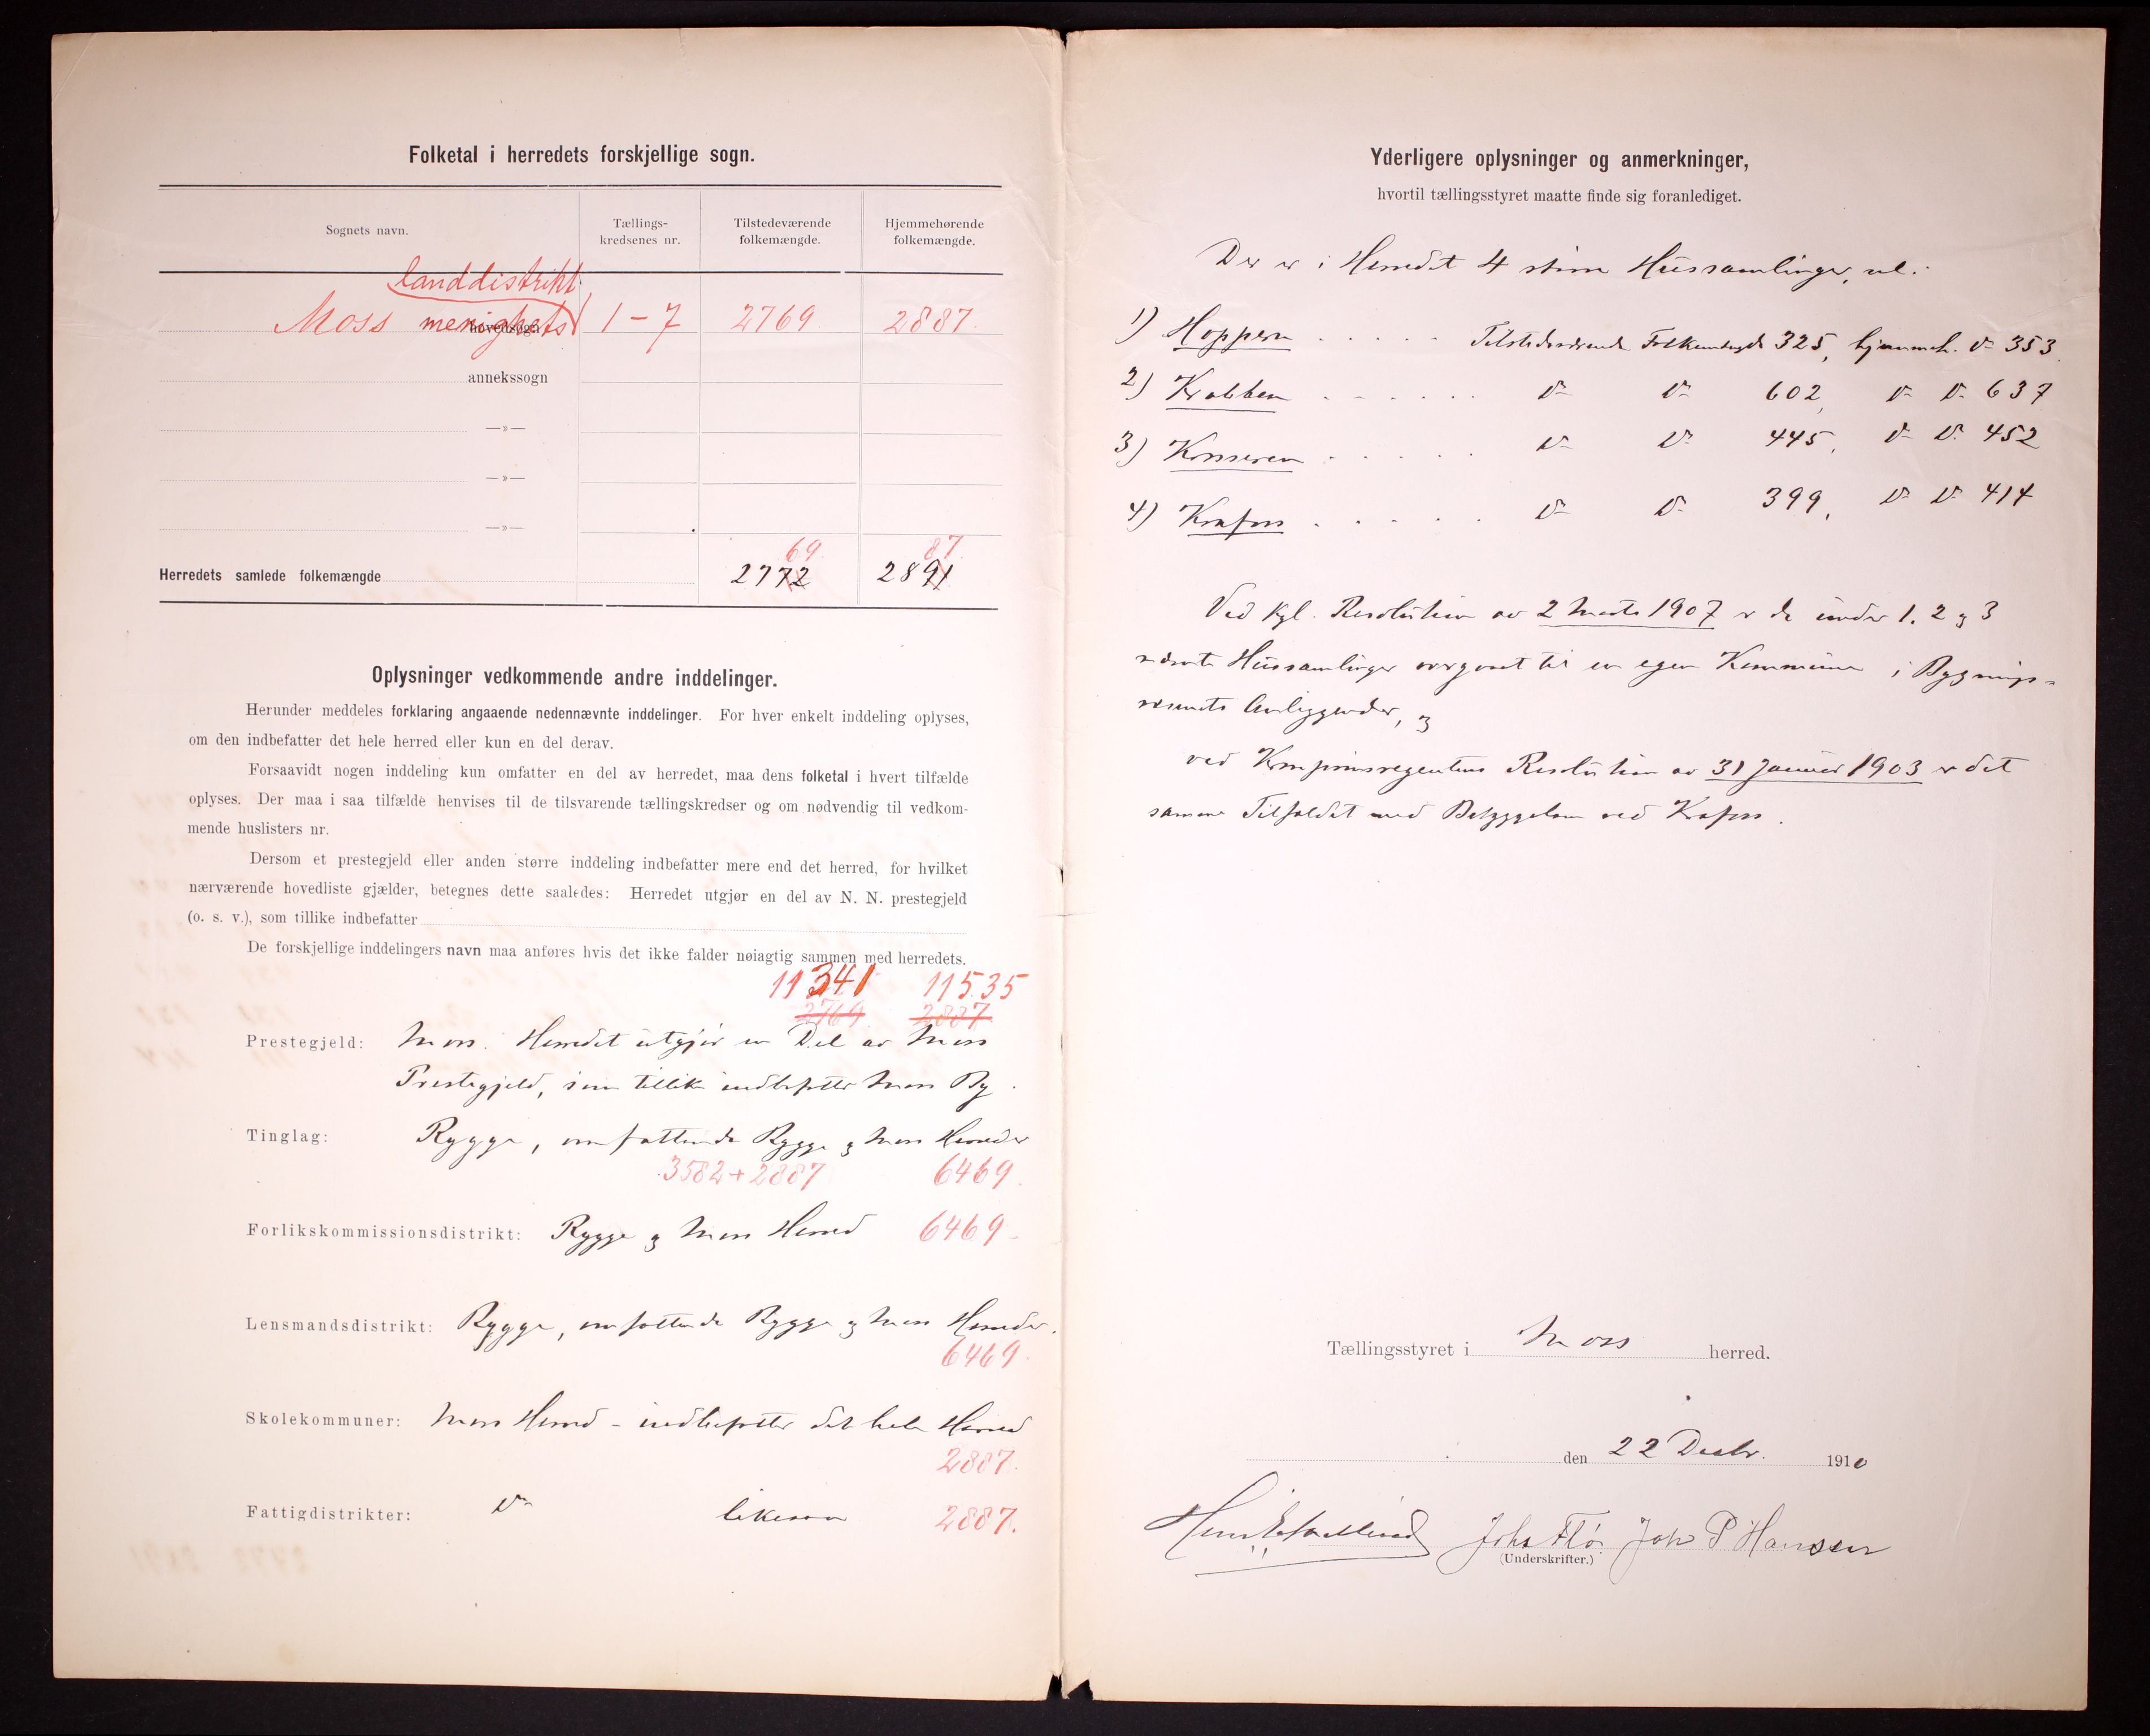 Folketal i herredets forskjellige sogn.
Sognets navn.
Tællings-
kredsenes nr.
Tilstedeværende
folkemængde.
Hjemmehørende
folkemængde.
landdistrikt
Moss menighets hovedsogn 1-7 2769 2887
annekssogn
—»—
—»—
—»—
69. 87.
Herredets samlede folkemængde 2772 2891
Oplysninger vedkommende andre inddelinger.
Herunder meddeles forklaring angaaende nedennævnte inddelinger. For hver enkelt inddeling oplyses,
om den indbefatter det hele herred eller kun en del derav.
Forsaavidt nogen inddeling kun omfatter en del av herredet, maa dens folketal i hvert tilfælde
oplyses. Der maa i saa tilfælde henvises til de tilsvarende tællingskredser og om nødvendig til vedkom-
mende huslisters nr.
Dersom et prestegjeld eller anden større inddeling indbefatter mere end det herred, for hvilket
nærværende hovedliste gjælder, betegnes dette saaledes: Herredet utgjør en del av N. N. prestegjeld
(o. s. v.), som tillike indbefatter
De forskjellige inddelingers navn maa anføres hvis det ikke falder nøiagtig sammen med herredets.
11341 11535
2769 2887
Prestegjeld: Moss. Herredet utgjør en Del av Moss
Prestegjeld, som tillike indbefatter Moss By.
Tinglag: Rygge, omfattende Rygge og Moss Herreder
3582+2887 6469.
Forlikskommissionsdistrikt: Rygge og Moss Herred 6469
Lensmandsdistrikt: Rygge, omfattende Rygge og Moss Herreder.
6469.
Skolekommuner: Moss Herred - indbefatter det hele Herred
2887.
Fattigdistrikter: Do likesaa 2887.
Yderligere oplysninger og anmerkninger,
hvortil tællingsstyret maatte finde sig foranlediget.
Der er i Herredet 4 større Hussamlinger, nl.
1) Hoppern . . . . . Tilstedeværende Folkemengde 325, hjemmeh. Do 353.
2) Krabben . . . . . . Do Do 602, Do Do 637
3) Kransen . . . . . Do Do 445, Do Do 452
4) Krafoss . . . . . Do Do 399, Do Do 414
Ved kgl. Resolution av 2 Marts 1907 er de under 1, 2 og 3
nævnte Hussamlinger overgaaet til en egen Kommune i Bygnings-
væsenets Anliggender, og
ved Kronprinsregentens Resolution av 31 Januar 1903 er det
samme Tilfældet med Bebyggelsen ved Krafoss.
Tællingsstyret i Moss herred.
den 22 Decbr. 1910
Johs Flø. Joh P Hansen
(Underskrifter.)